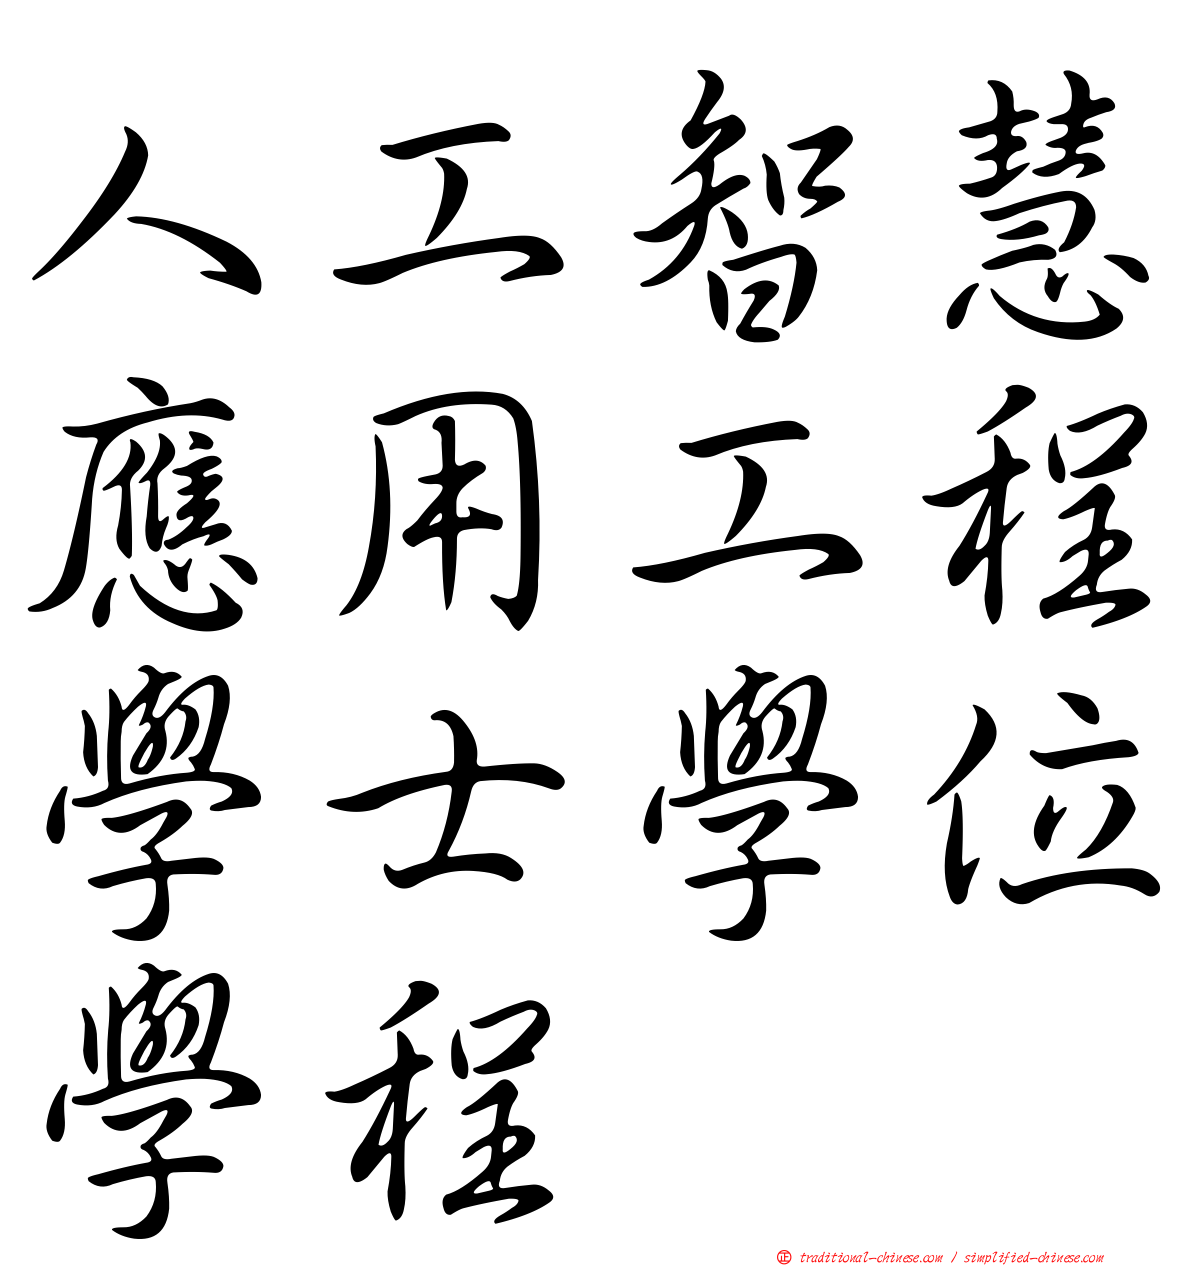 人工智慧
應用工程
學士學位
學程
㊣ traditional-chinese.com / simplified-chinese.com